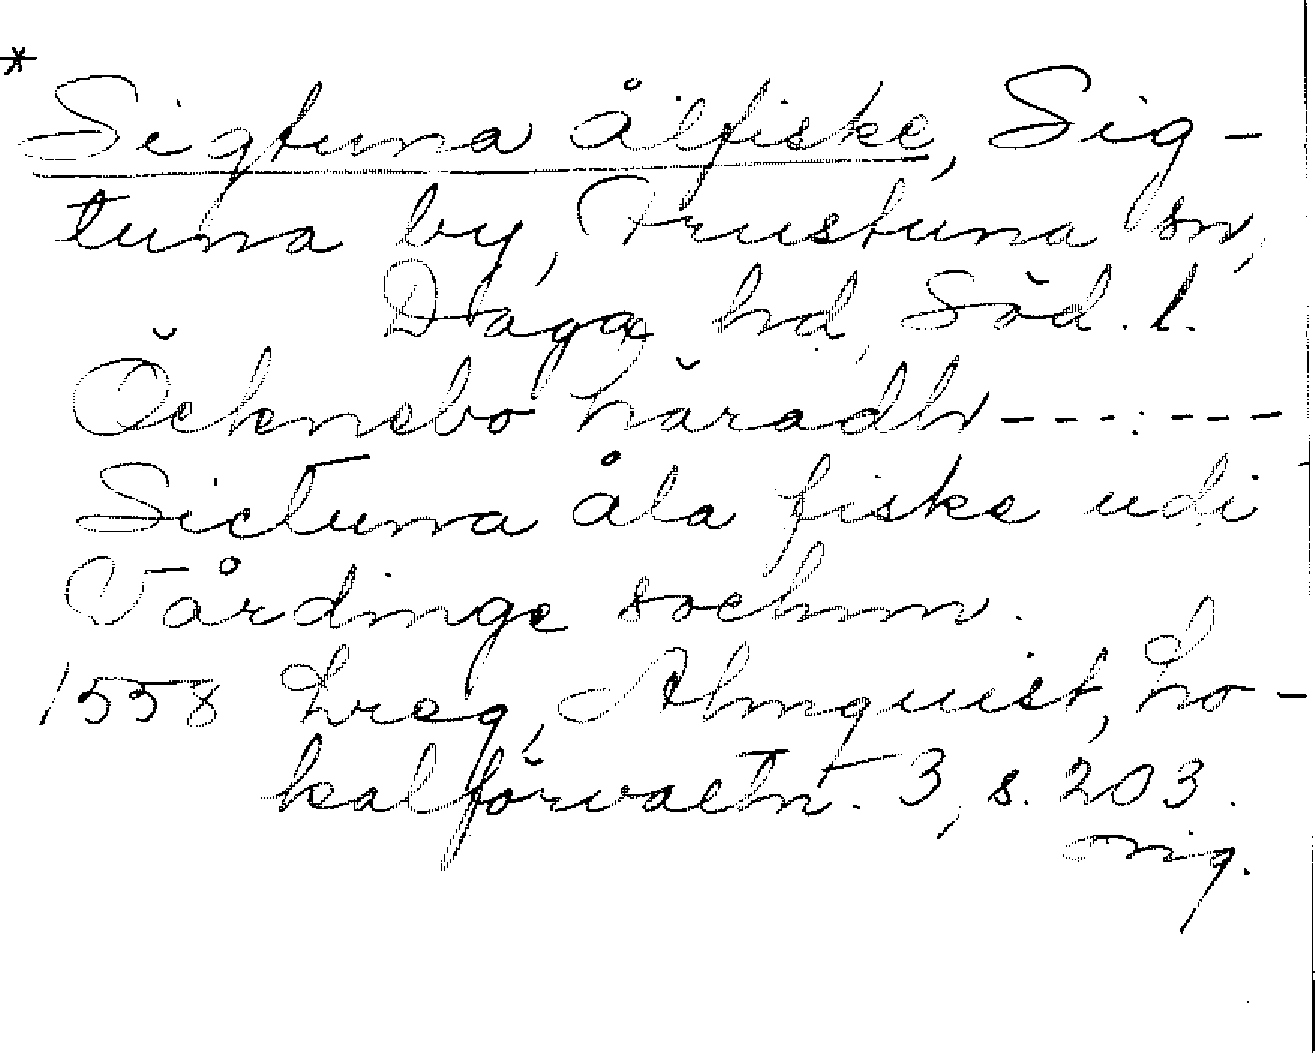 *
Sigtuna ålfiske, Sig-
tuna by, Frustuna sn,
Daga hd, Söd. l.
Öcknebo häradh ---:---
Sictuna åla fiske udi
Vårdinge sochnn.
1558 Lreg, Almquist, Lo-
kalförvaltn. 3, s. 203.
orig.